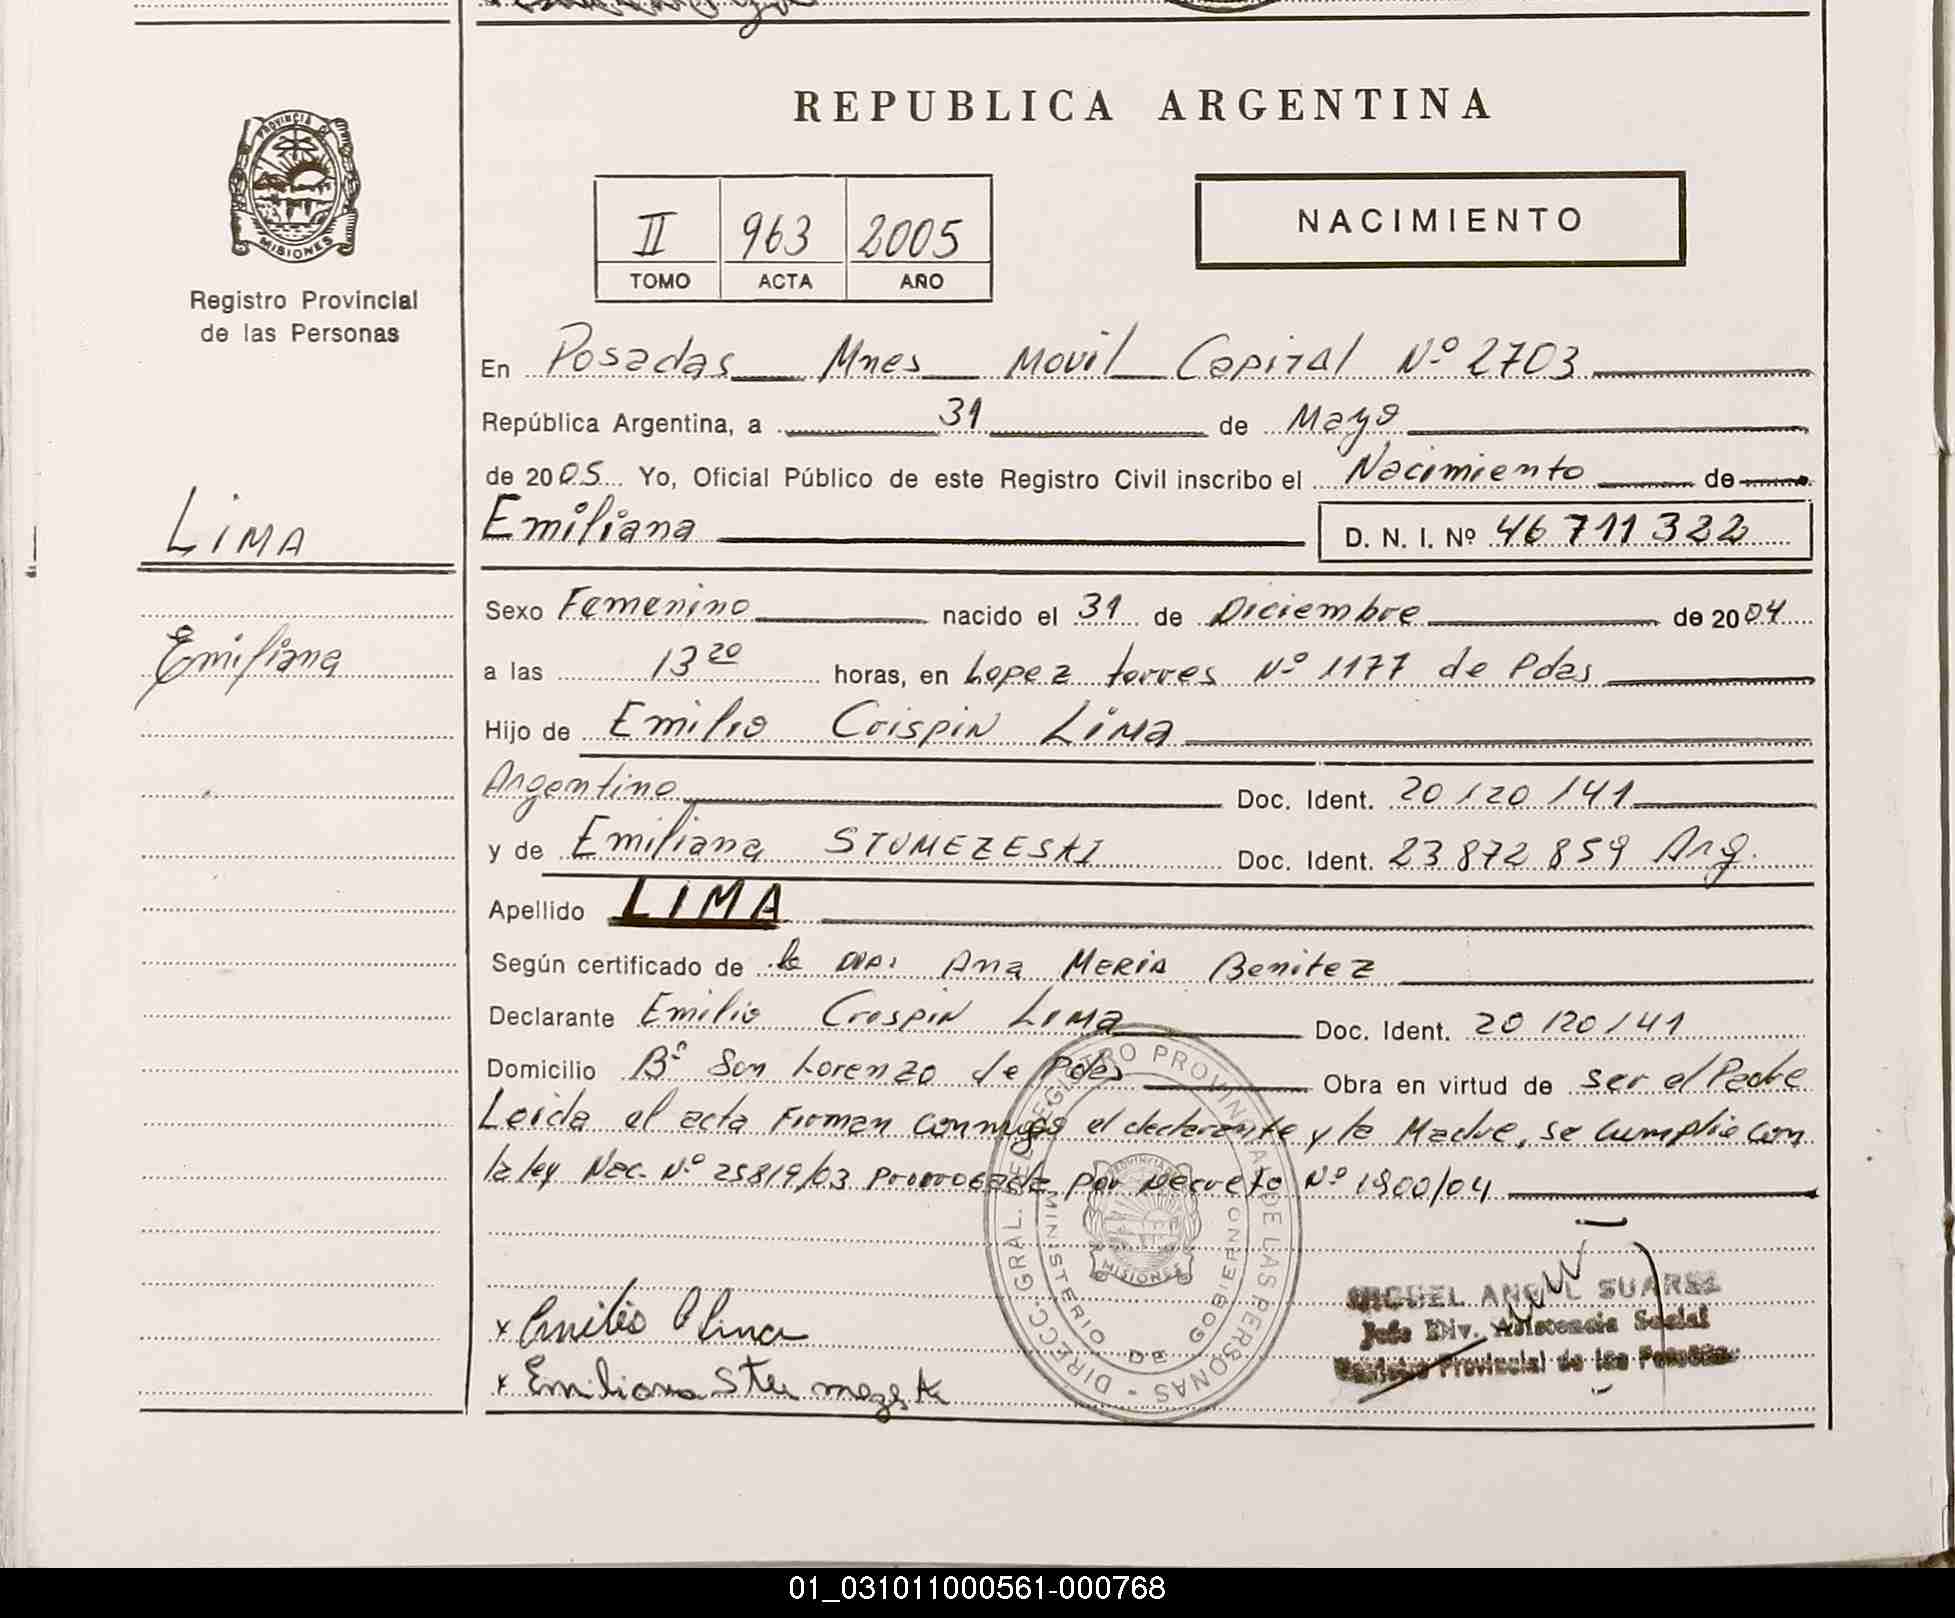 PROVINCIA DE
MISIONES
Registro Provincial
de las Personas
LiMA
Emiliana
REPUBLICA ARGENTINA
II 963 2005
TOMO ACTA AÑO
NACIMIENTO
En Posadas Mnes Movil Capital Nº 2703
República Argentina, a 31 de Mayo
de 2005 Yo, Oficial Público de este Registro Civil inscribo el Nacimiento de
Emiliana D. N. I. Nº 46 711 322
Sexo Femenino nacido el 31 de Diciembre de 2004
a las 13 20 horas, en Lopez torres Nº 1177 de Pdas
Hijo de Emilio Crispin LiMa
Argentino Doc. Ident. 20 120 141
y de Emiliana STUMEZESKI Doc. Ident. 23 872 859 Arg.
Apellido LIMA
Según certificado de la DRA: Ana MERIA Benitez
Declarante Emilio Crispin LiMa Doc. Ident. 20 120 141
Domicilio Bº San Lorenzo de Pdas Obra en virtud de ser el Padre
Leida el acta Firman conmigo el declarante y la Madre, se cumplio con
la ley Nac. Nº 25819/03 prorrogada por Decreto Nº 1900/04
DIRECC. GRAL. DEL REGISTRO PROVINCIAL DE LAS PERSONAS -
MINISTERIO DE GOBIERNO
PROVINCIA DE
MISIONES
x Emilio C Lima
x Emiliana
MIGUEL ANGEL SUAREZ
Jefe Div. Asistencia Social
Registro Provincial de las Personas
01_031011000561-000768